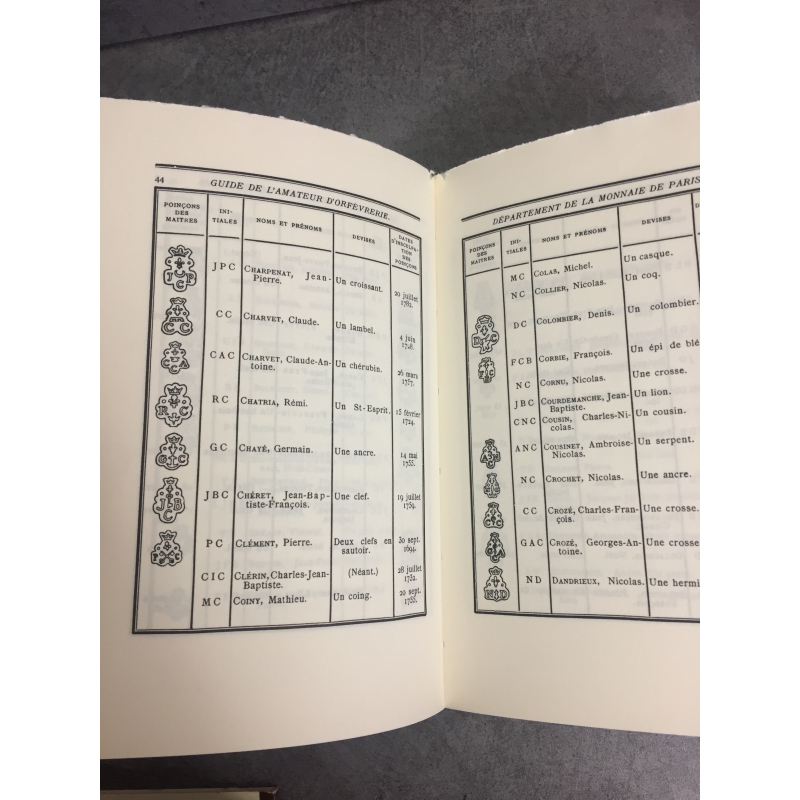 44
GUIDE DE L'AMATEUR D'ORFÈVRERIE.
POINÇONS DES MAITRES INI-TIALES NOMS ET PRÉNOMS DEVISES DATES D'INSCULPA-TION DES POINÇONS
J P C CHARPENAT, Jean-Pierre. Un croissant. 20 juillet 1782.
C C CHARVET, Claude. Un lambel. 4 juin 1728.
C A C CHARVET, Claude-Antoine. Un chérubin. 26 mars 1757.
R C CHATRIA, Rémi. Un St-Esprit. 16 février 1724.
G C CHAYÉ, Germain. Une ancre. 14 mai 1755.
J B C CHÉRET, Jean-Baptiste-François. Une clef. 19 juillet 1759.
P C CLÉMENT, Pierre. Deux clefs en sautoir. 30 sept. 1694.
C I C CLÉRIN, Charles-Jean-Baptiste. (Néant.) 28 juillet 1782.
M C COINY, Mathieu. Un coing. 20 sept. 1755.
DÉPARTEMENT DE LA MONNAIE DE PARIS
POINÇONS DES MAITRES INI-TIALES NOMS ET PRÉNOMS DEVISES
M C COLAS, Michel. Un casque.
N C COLLIER, Nicolas. Un coq.
D C COLOMBIER, Denis. Un colombier.
F C B CORBIE, François. Un épi de blé
N C CORNU, Nicolas. Une crosse.
J B C COURDEMANCHE, Jean-Baptiste. Un lion.
C N C COUSIN, Charles-Nicolas. Un cousin.
A N C COUSINET, Ambroise-Nicolas. Un serpent.
N C CROCHET, Nicolas. Une ancre.
C C CROZÉ, Charles-François. Une crosse.
G A C CROZÉ, Georges-Antoine. Une crosse
N D DANDRIEUX, Nicolas. Une hermi